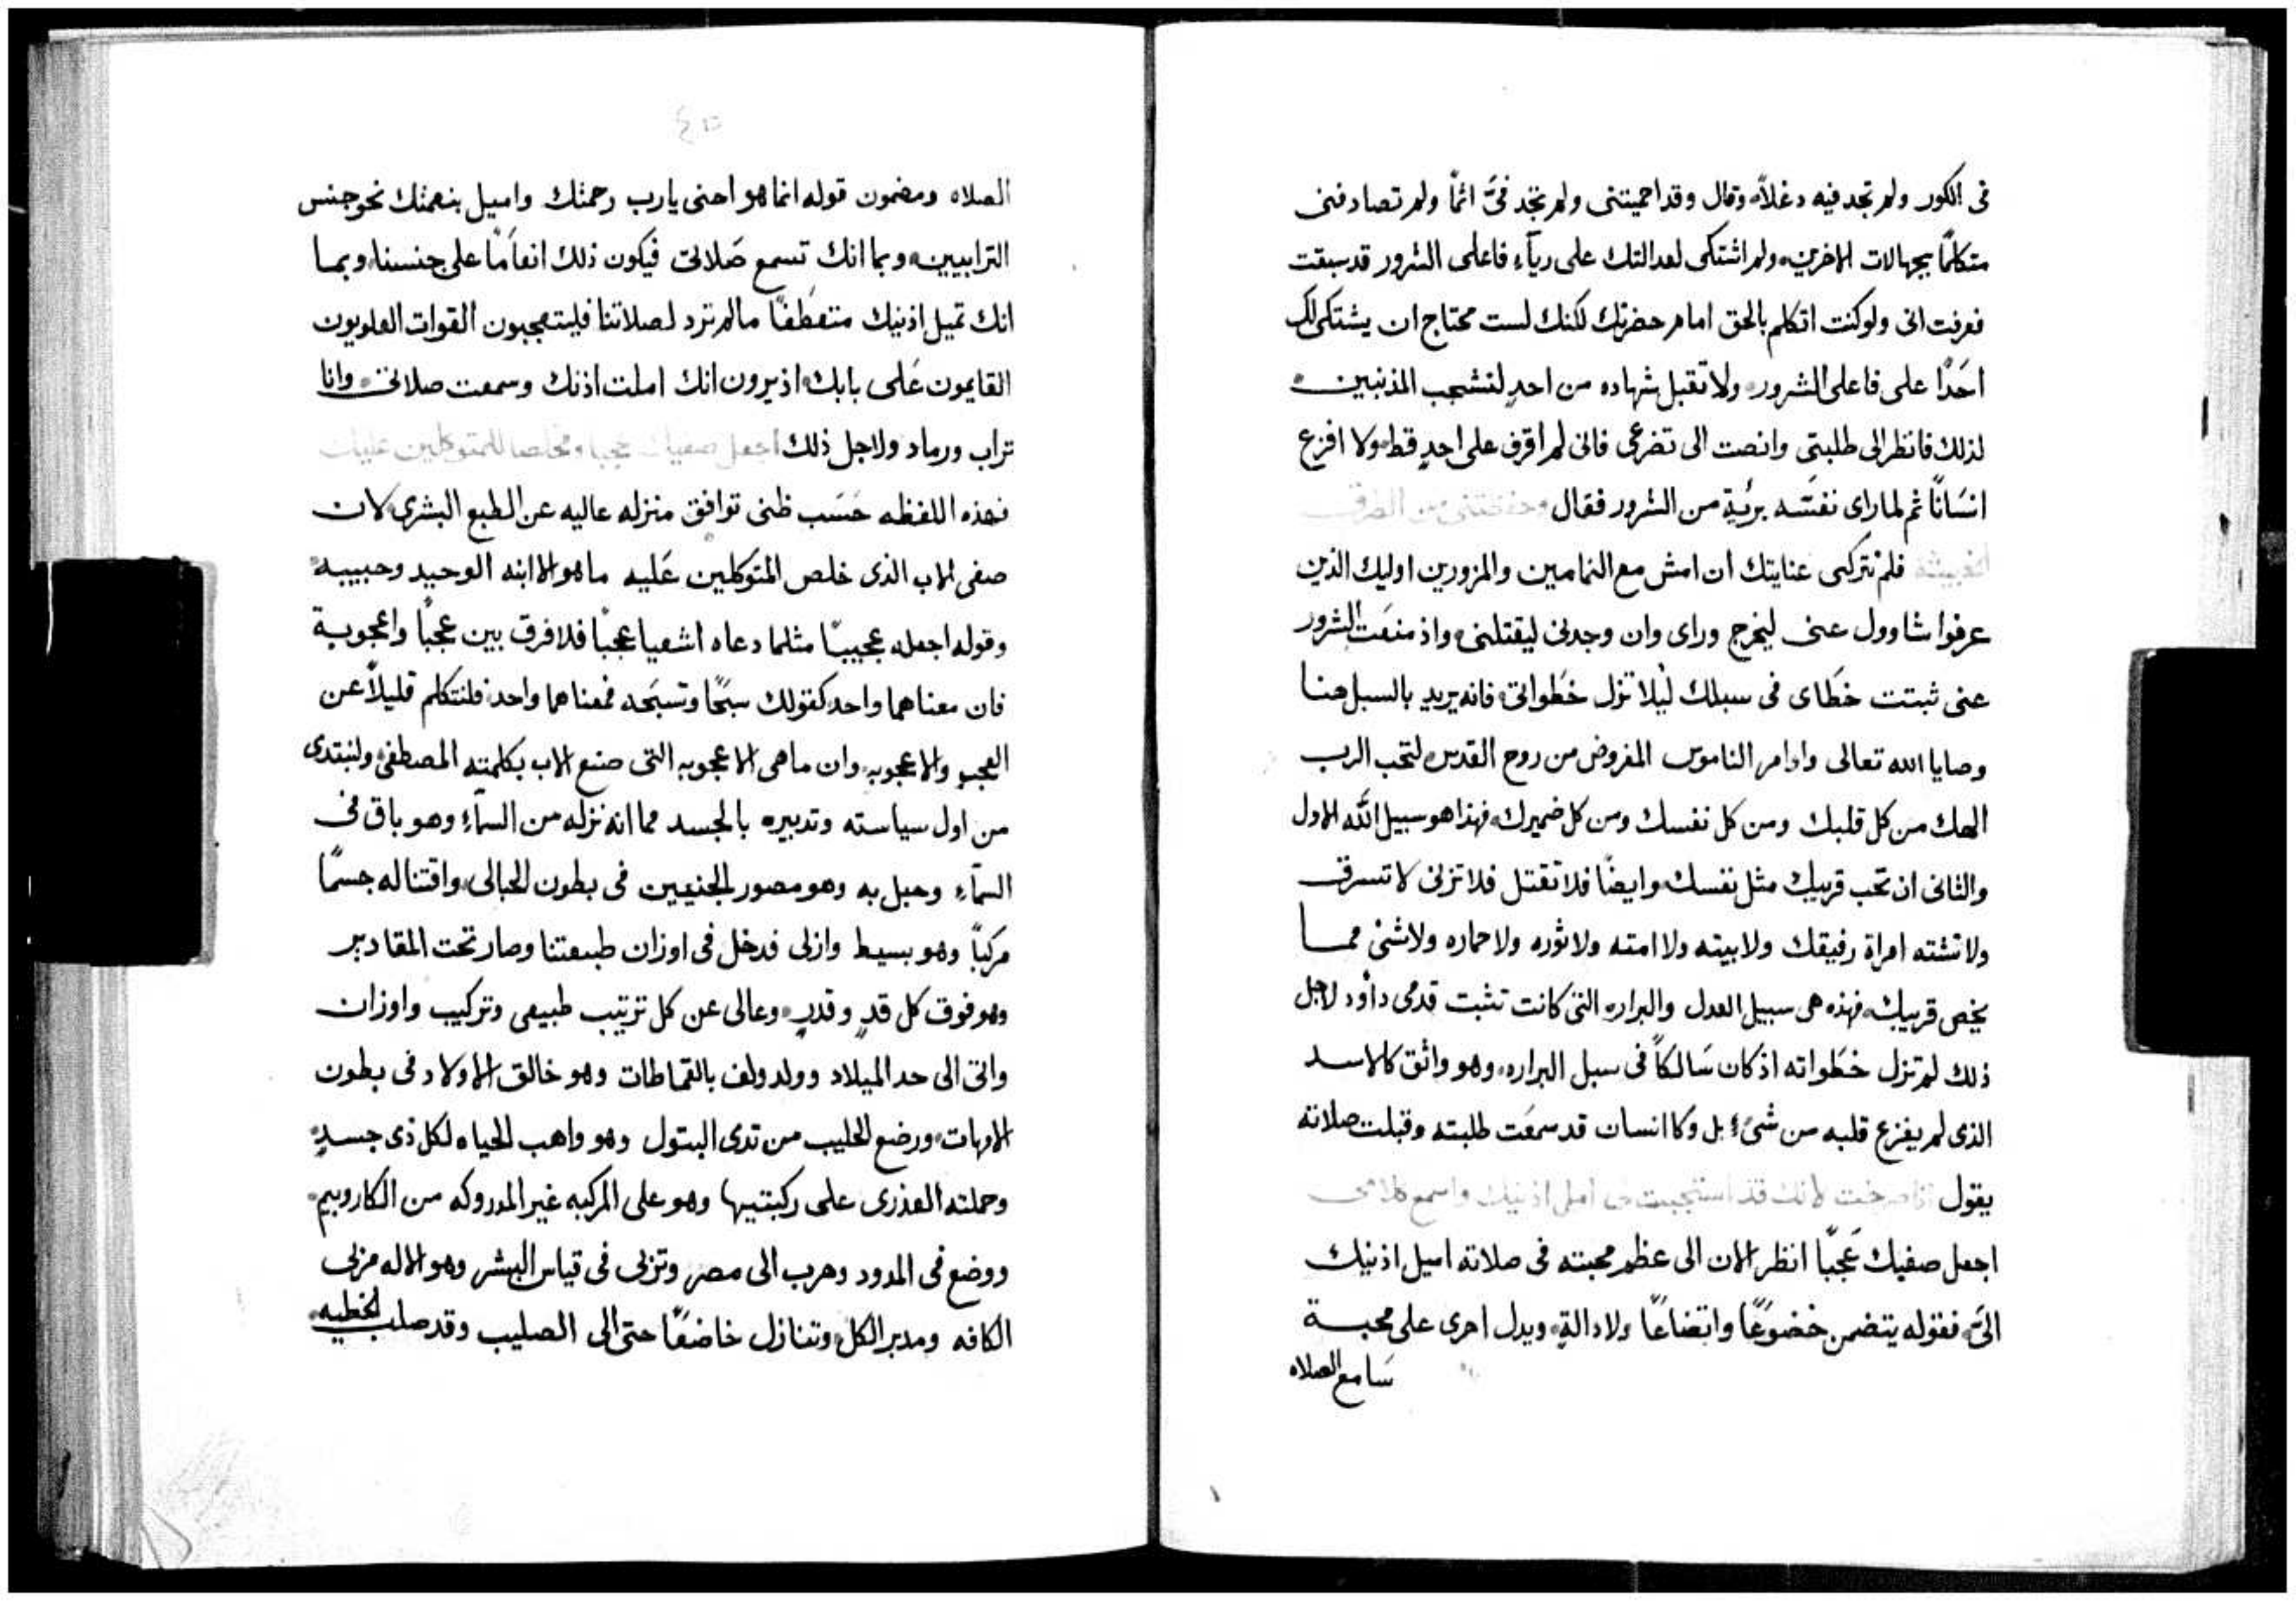 فى الكور ولم تجد فيه دغلاً وقال وقد احميتنى ولم تجد فىَّ اثمًا ولم تصادفنى
متكلمًا بجهالات الاخرين ولم اشتكى لعدالتك على ريآء فاعلى الشرور قد سبقت
فعرفت انى ولو كنت اتكلم بالحق امام حضرتك لكنك لست محتاج ان يشتكى لك
احَدًا على فاعلى الشرور ولا تقبل شهاده من احدٍ لتشجب المذنبين
لذلك فانظر الى طلبتى وانصت الى تضرعى فانى لم اقرف على احدٍ قط ولا افزع
انسَانًا ثم لما راى نفسَه بريَّةٍ من الشرور فقال وحفظتنى من الطرق
الخبيثه فلم تتركى عنايتك ان امش مع النمامين والمزورين اوليك الذين
عرفوا شاوول عنى ليخرج وراى وان وجدنى ليقتلنى واذ منعَت الشرور
عنى ثبتت خطَاى فى سبلك ليلا تزل خطَواتى فانه يريد بالسبل هنا
وصايا الله تعالى واوامر الناموس المفروض من روح القدس لتحب الرب
الهك من كل قلبك ومن كل نفسك ومن كل ضميرك فهذا هو سبيل الله الاول
والثانى ان تحب قريبك مثل نفسك وايضًا فلا تقتل فلا تزنى لا تسرق
ولا تشته امراة رفيقك ولا بيته ولا امته ولا ثوره ولا حماره ولا شئ مما
يخص قريبك فهذه هى سبيل العدل والبراره التى كانت تثبت قدمى داوُد لاجل
ذلك لم تزل خطَواته اذ كان سَالكًا فى سبل البراره وهو واثق كالاسد
الذى لم يفزع قلبه من شئٍ بل وكاانسان قد سمعَت طلبته وقبلت صلاته
يقول انا صرخت لانك قد استجبت لى امل اذنيك واسمع كلامى
اجعل صفيك عَجبًا انظر الان الى عظم محبته فى صلاته اميل اذنيك
الىَّ فقوله يتضمن خضوعًا واتضاعًا ولا دالةٍ ويدل احرى على محبة
سَامع الصلاه
الصلاه ومضمون قوله انما هو احنى يارب رحمتك واميل بنعمتك نحو جنس
الترابيين وبما انك تسمع صَلاتى فيكون ذلك انعَامًا على جنسنا وبما
انك تميل اذنيك متعطَفًا مالم ترد لصلاتنا فليتعجبون القوات العلويون
القايمون عَلى بابك اذ يرون انك املت اذنك وسمعت صلاتى وانا
تراب ورماد ولاجل ذلك اجعل صفيك عجبا ومخلصا للمتوكلين عليك
فهذه اللفظه حَسَب ظنى توافق منزله عاليه عن الطبع البشرى لان
صفى الاب الذى خلص المتوكلين عَليه ما هو الا ابنه الوحيد وحبيبه
وقوله اجعله عجيبًا مثلما دعاه اشعيا عجبًا فلا فرق بين عَجبًا واعجوبة
فان معناهما واحد كقولك سبَحًا وتسبحَه فمعناهما واحد فلنتكلم قليلاً عن
العجب والاعجوبه وان ما هى الاعجوبه التى صنع الاب بكلمته المصطفى ولنبتدى
من اول سياسته وتدبيره بالجسد مما انه نزله من السمآءِ وهو باق فى
السمآءِ وحبل به وهو مصور الجنيين فى بطون الحبالى واقتنا له جسمًا
مركبًا وهو بسيط وازلى فدخل فى اوزان طبيعتنا وصار تحت المقادير
وهو فوق كل قدٍ وقدرٍ وعالى عن كل ترتيب طبيعى وتركيب واوزان
واتى الى حد الميلاد وولد ولف بالقماطات وهو خالق الاولاد فى بطون
الامهات ورضع الحليب من تدى البتول وهو واهب الحياه لكل ذى جسدٍ
وحملته العذرى على ركبتيها وهو على المركبه غير المدروكه من الكاروبيم
ووضع فى المدود وهرب الى مصر وتربى فى قياس البشر وهو الاله مربى
الكافه ومدبر الكل وتنازل خاضعًا حتى الى الصليب وقد صلب الخطيه